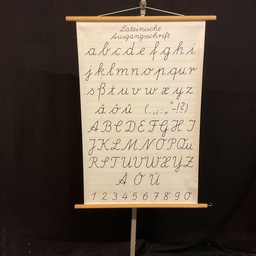 Lateinische
Ausgangsschrift
a b c d e f g h i
j k l m n o p qu r
s ß t u v w x y z
ä ö ü (.,;:„"-!?)
A B C D E F G H I
J K L M N O P Qu
R S T U V W X Y Z
Ä Ö Ü
1 2 3 4 5 6 7 8 9 0